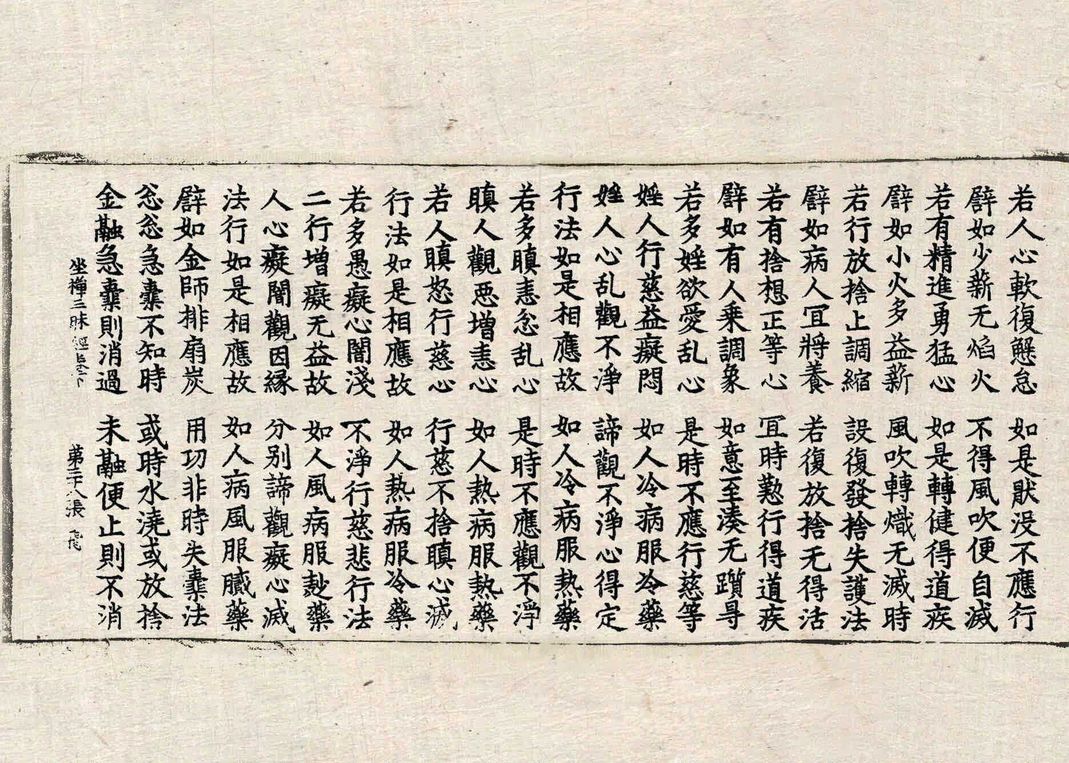 若人心軟復懈怠　如是猒没不應行
譬如少薪无焰火　不得風吹便自滅
若有精進勇猛心　如是轉健得道疾
譬如小火多益薪　風吹轉熾无滅時
若行放捨上調縮　設復發捨失護法
譬如病人宜將養　若復放捨无得活
若有捨想正等心　冝時懃行得道疾
譬如有人乗調象　如意至湊无躓㝵
若多婬欲愛乱心　是時不應行慈等
婬人行慈益癡悶　如人冷病服冷藥
婬人心乱觀不淨　諦觀不淨心得定
行法如是相應故　如人冷病服熱藥
若多瞋恚忿乱心　是時不應觀不淨
瞋人觀惡增恚心　如人熱病服熱藥
若人瞋怒行慈心　行慈不捨瞋心滅
行法如是相應故　如人熱病服冷藥
若多愚癡心闇淺　不淨行慈悲行法
二行增癡无益故　如人風病服麨藥
人心癡闇觀因縁　分別諦觀癡心滅
法行如是相應故　如人病風服膩藥
譬如金師排扇炭　用功非時失橐法
忩忩急橐不知時　或時水澆或放捨
金融急橐則消過　未融便止則不消
坐禅三昧經卷下　第三十八張